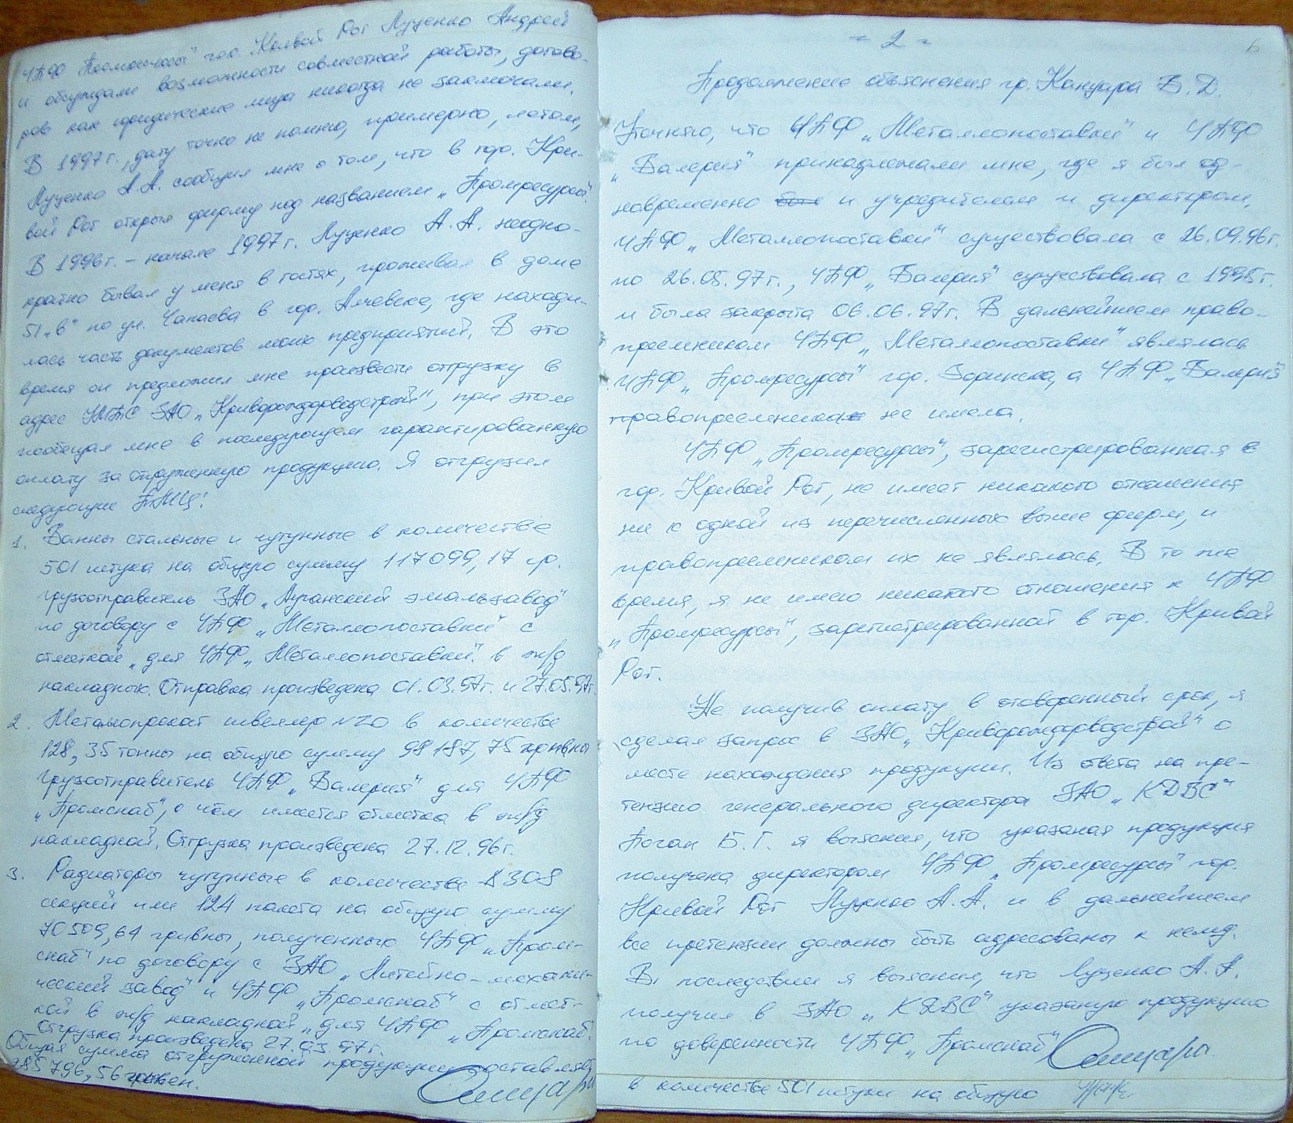 ЧПФ „Промресурсы" гор. Кривой Рог Луценко Андрей
и обсуждали возможности совместной работы, догово-
ров как юридические лица никогда не заключали.
В 1997г., дату точно не помню, примерно, летом,
Луценко А.А. сообщил мне о том, что в гор. Кри-
вой Рог открыл фирму под названием „Промресурсы".
В 1996г. – начале 1997г. Луценко А.А. неодно-
кратно бывал у меня в гостях, проживал в доме
51„в" по ул. Чапаева в гор. Алчевске, где находи-
лась часть документов моих предприятий. В это
время он предложил мне произвести отгрузку в
адрес ЗАО „Криворождорводстрой", при этом
пообещал мне в последующем гарантированную
оплату за отгруженную продукцию. Я отгрузил
следующие ТМЦ:
1. Ванны стальные и чугунные в количестве
501 штука на общую сумму 117099,17 гр.
грузоотправитель ЗАО „Луганский эмальзавод"
по договору с ЧПФ „Металлопоставки" с
отметкой „для ЧПФ „Металлопоставки" в ж/д
накладных. Отправка произведена 01.03.97г. и 27.05.97г.
2. Металлопрокат швеллер N20 в количестве
128,35 тонны на общую сумму 98187,75 гривны
грузоотправитель ЧПФ „Валерия" для ЧПФ
„Промснаб", о чём имеется отметка в ж/д
накладной. Отгрузка произведена 27.12.96г.
3. Радиаторы чугунные в количестве 8308
секций или 124 палета на общую сумму
70509,64 гривны, полученных ЧПФ „Пром-
снаб" по договору с ЗАО „Литейно-механи-
ческий завод" и ЧПФ „Промснаб" с отмет-
кой в ж/д накладной „для ЧПФ „Промснаб".
Отгрузка произведена 27.03.97г.
Общая сумма отгруженной продукции составляет
285796,56 гривен.
= 2 =
6
Продолжение объяснения гр. Канцара В.Д.
Уточняю, что ЧПФ „Металлопоставки" и ЧПФ
„Валерия" принадлежали мне, где я был од-
новременно и учредителем и директором.
ЧПФ „Металлопоставки" существовала с 26.09.96г.
по 26.05.97г., ЧПФ „Валерия" существовала с 1995г.
и была закрыта 06.06.97г. В дальнейшем право-
преемником ЧПФ „Металлопоставки" являлась
ЧПФ „Промресурсы" гор. Зоринска, а ЧПФ „Валерия"
правопреемника не имела.
ЧПФ „Промресурсы", зарегистрированная в
гор. Кривой Рог, не имеет никакого отношения
ни к одной из перечисленных выше фирм, и
правопреемником их не являлась. В то же
время, я не имею никакого отношения к ЧПФ
„Промресурсы", зарегистрированной в гор. Кривой
Рог.
Не получив оплату в оговоренный срок, я
сделал запрос в ЗАО „Криворождорводстрой" о
месте нахождения продукции. Из ответа на пре-
тензию генерального директора ЗАО „КДВС"
Коган Б.Г. я выяснил, что указаная продукция
получена директором ЧПФ „Промресурсы" гор.
Кривой Рог Луценко А.А. и в дальнейшем
все претензии должны быть адресованы к нему.
В последствии я выяснил, что Луценко А.А.
получил в ЗАО „КДВС" указаную продукцию
по доверенности ЧПФ „Промснаб"
в количестве 501 штуки на общую